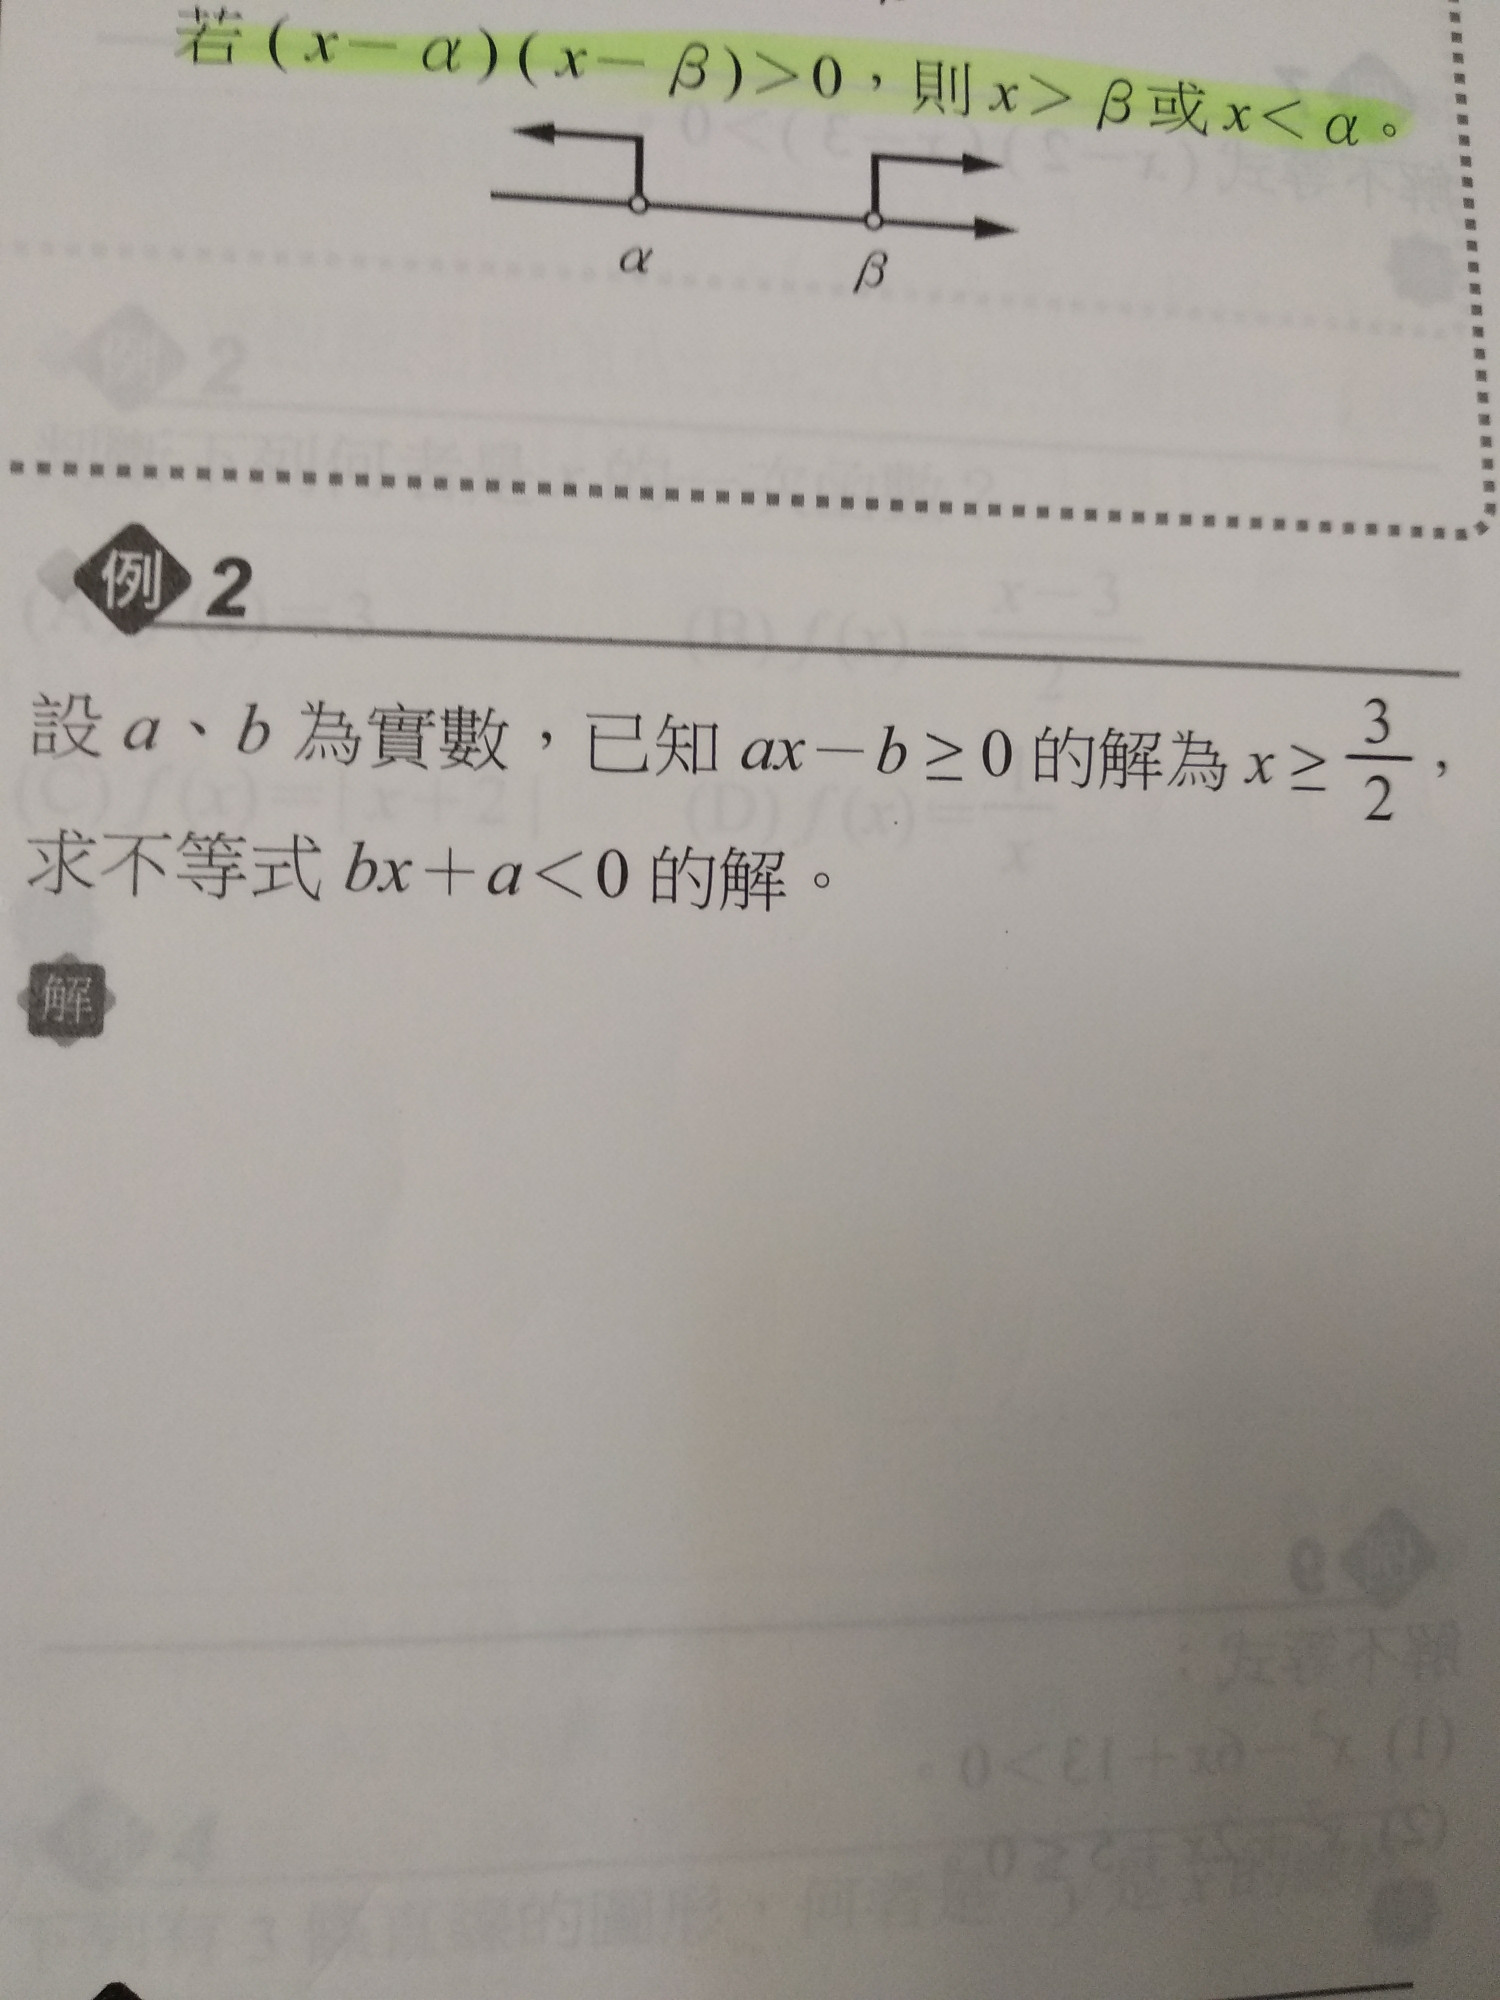 若(x－α)(x－β)>0，則x>β或x<α。
α β
例 2
設 a、b 為實數，已知 ax－b≥0 的解為 x≥3/2，
求不等式 bx＋a<0 的解。
解